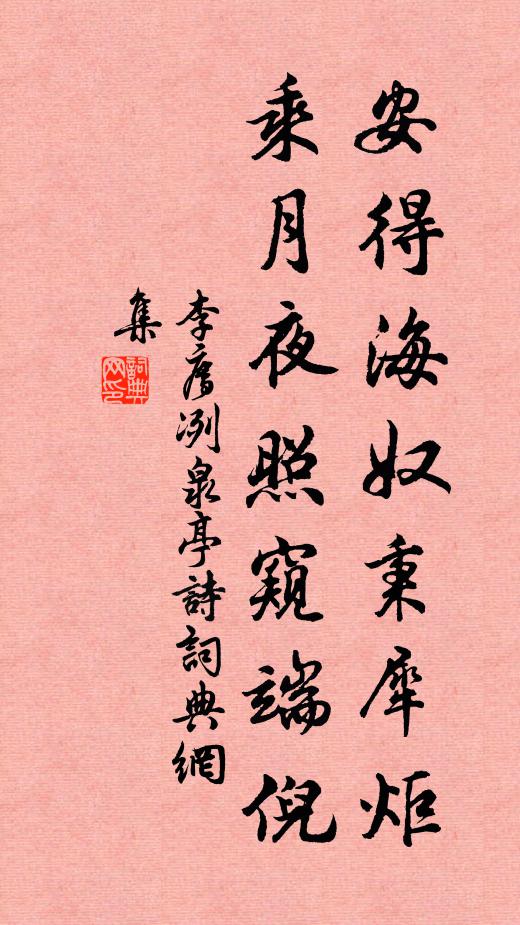 安得海奴秉犀炬
乘月夜照窺端倪
李廌冽泉亭詩詞典網
集
詞典
网印